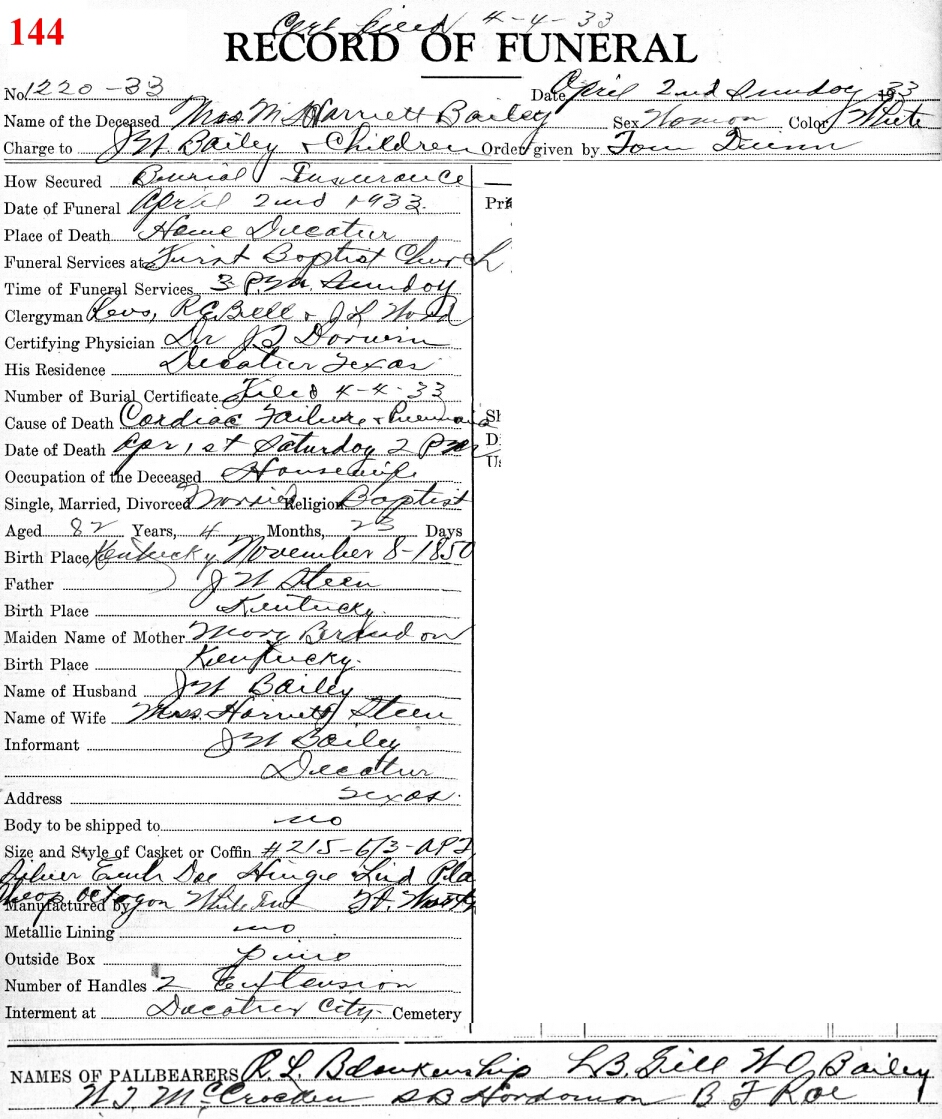 144
Cert filed 4-4-33
RECORD OF FUNERAL
No. 1220-33 Date April 2nd Sunday 1933
Name of the Deceased Mrs. M Harriett Bailey Sex Woman Color White
Charge to J W. Bailey & Children Order given by Tom Dunn
How Secured Burial Insurance
Date of Funeral April 2nd 1933.
Place of Death Home Decatur
Funeral Services at First Baptist Church
Time of Funeral Services 3 P.M. Sunday
Clergyman Revs, R.E. Bell & J L Ward
Certifying Physician Dr J J Dorwin
His Residence Decatur Texas
Number of Burial Certificate Filed 4-4-33
Cause of Death Cardiac Failure & Pneumonia
Date of Death Apr 1st Saturday 2 PM
Occupation of the Deceased Housewife
Single, Married, Divorced Married Religion Baptist
Aged 82 Years, 4 Months, 23 Days
Birth Place Kentucky November 8-1850
Father J W Steen
Birth Place Kentucky.
Maiden Name of Mother Mary
Birth Place Kentucky.
Name of Husband J W Bailey
Name of Wife Mrs. Harriett Steen
Informant J W Bailey
Decatur
Address Texas.
Body to be shipped to no
Size and Style of Casket or Coffin #215-6/3-
Silver Doe Hinge Lind
Manufactured by Octagon White Ft. Worth
Metallic Lining no
Outside Box pine
Number of Handles 2 Extension
Interment at Decatur City Cemetery
NAMES OF PALLBEARERS R. L. Blankenship L.B. Gill W O Bailey
W. J. McCracken S B Hardamon B F Roe